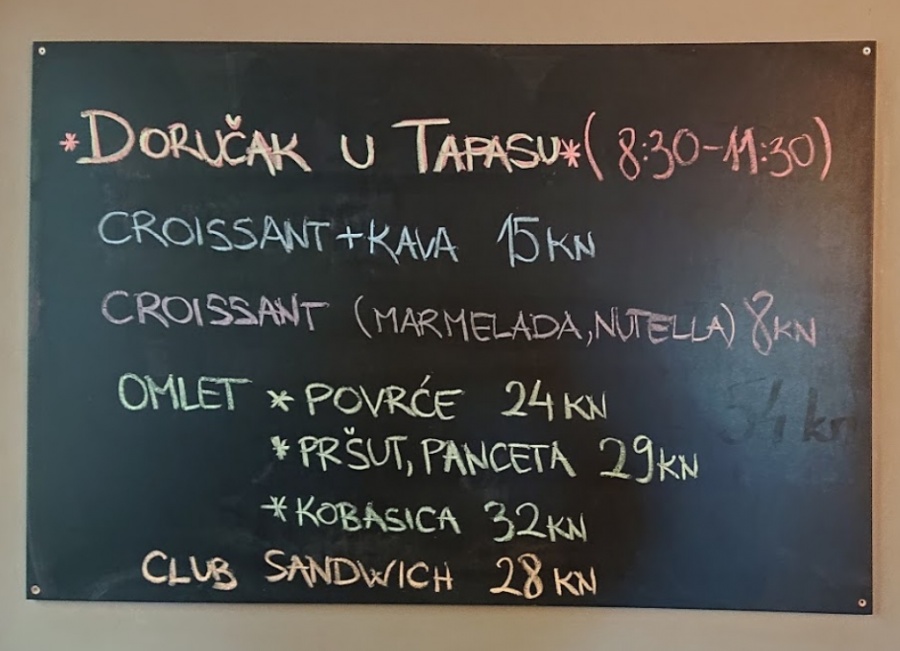 *DORUČAK U TAPASU* (8:30-11:30)
CROISSANT+KAVA 15KN
CROISSANT (MARMELADA, NUTELLA) 8KN
OMLET * POVRĆE 24KN
54 kn
* PRŠUT, PANCETA 29KN
* KOBASICA 32KN
CLUB SANDWICH 28KN